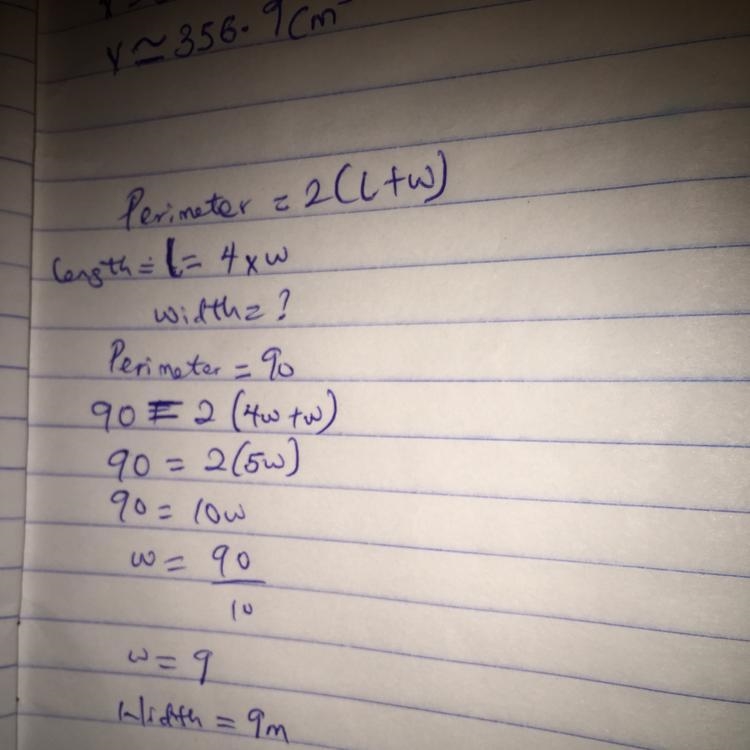 r ≃ 356.9 cm
Perimeter = 2(l+w)
Length = l = 4 x w
width = ?
Perimeter = 90
90 = 2 (4w + w)
90 = 2(5w)
90 = 10w
w = 90
10
w = 9
Width = 9m